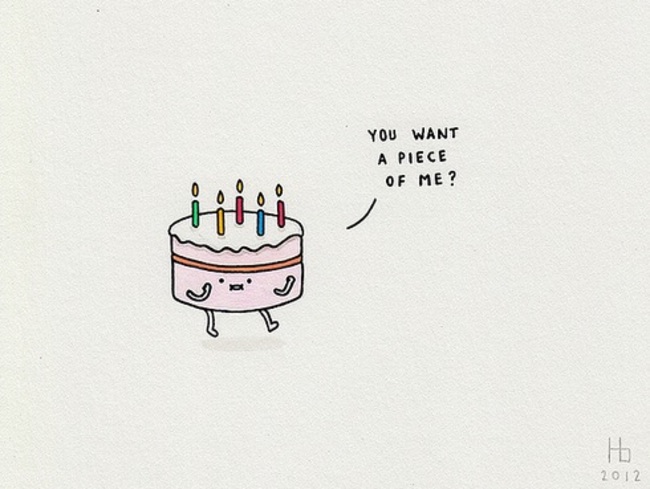 YOU WANT
A PIECE
OF ME?
Hb
2012